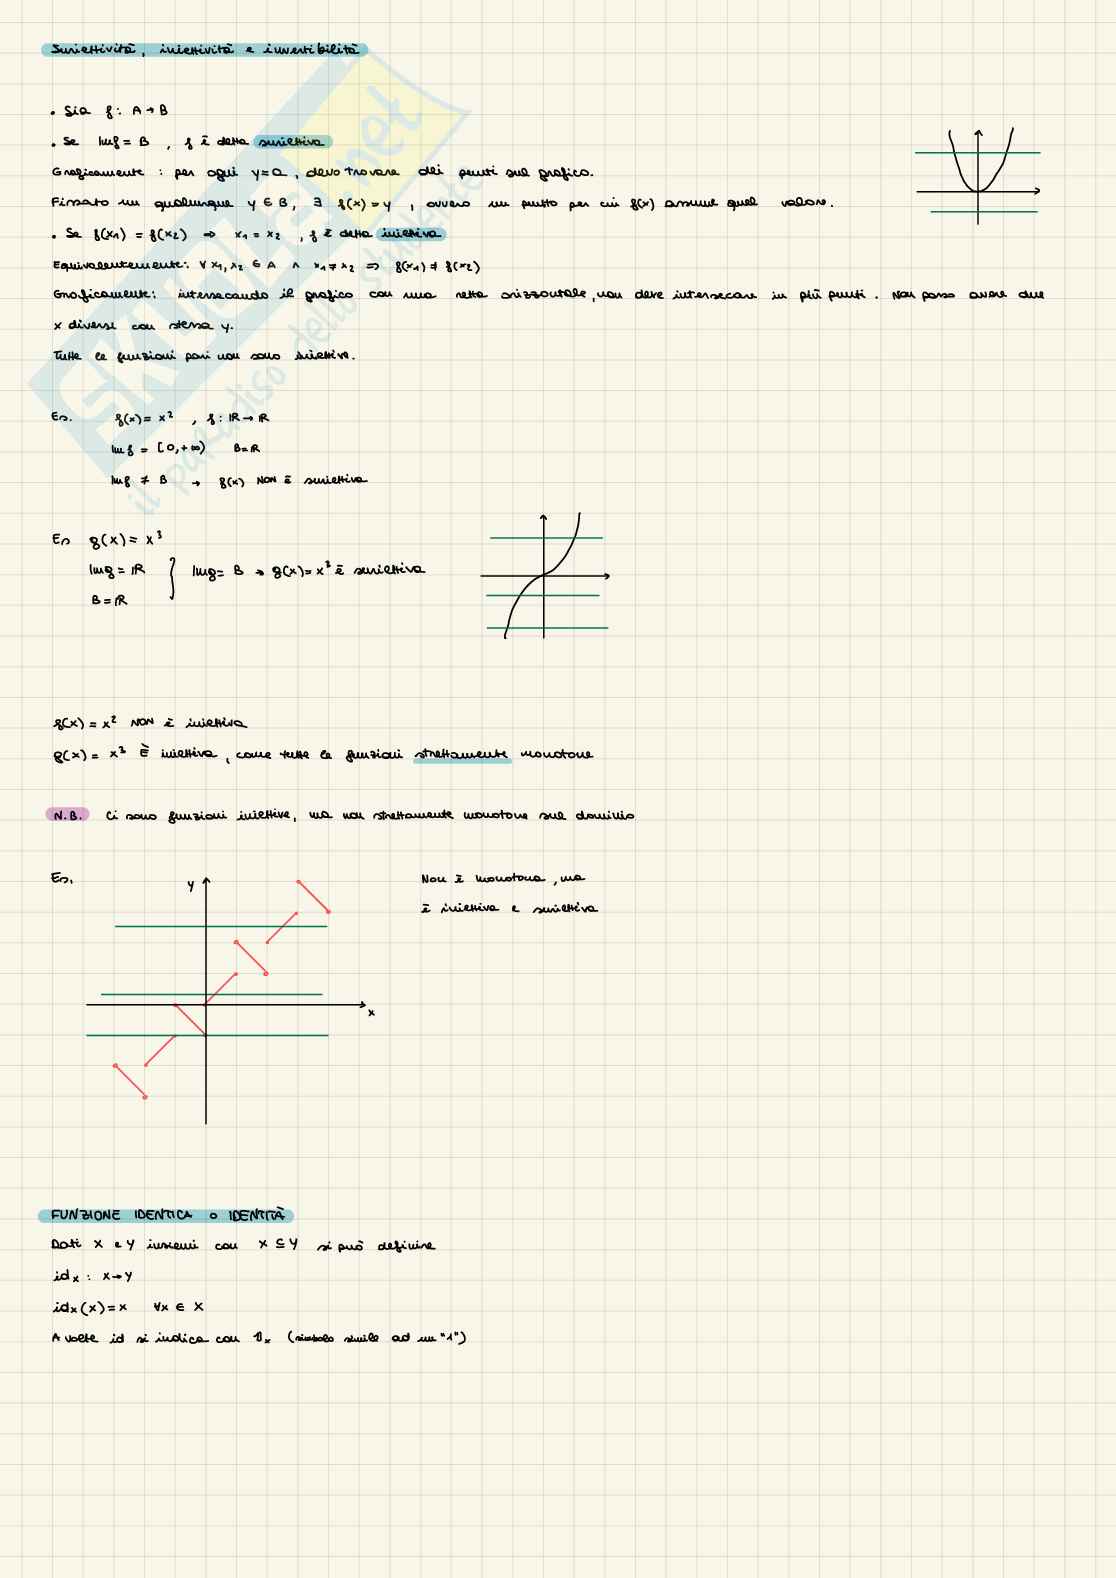 Suriettività, iniettività e invertibilità
• Sia f: A → B
• Se Imf = B , f è detta suriettiva
Graficamente : per ogni y=a, devo trovare dei punti sul grafico.
Fissato un qualunque y ∈ B, ∃ f(x) = y , ovvero un punto per cui f(x) assume quel valore.
• Se f(x₁) = f(x₂) ⇒ x₁ = x₂ , f è detta iniettiva
Equivalentemente: ∀ x₁, x₂ ∈ A ∧ x₁ ≠ x₂ ⇒ f(x₁) ≠ f(x₂)
Graficamente: intersecando il grafico con una retta orizzontale, non deve intersecare in più punti. Non posso avere due
x diversi con stessa y.
Tutte le funzioni pari non sono iniettive.
Es. f(x) = x² , f: ℝ → ℝ
Imf = [0,+∞) B=ℝ
Imf ≠ B → f(x) NON è suriettiva
Es g(x) = x³
Img = ℝ } Img = B → g(x) = x³ è suriettiva
B = ℝ
f(x) = x² NON è iniettiva
g(x) = x³ È iniettiva, come tutte le funzioni strettamente monotone
N.B. Ci sono funzioni iniettive, ma non strettamente monotone sul dominio
Es. y
Non è monotona, ma
è iniettiva e suriettiva
x
FUNZIONE IDENTICA o IDENTITÀ
Dati X e Y insiemi con X ⊆ Y si può definire
idₓ : X → Y
idₓ(x) = x ∀x ∈ X
A volte id si indica con 𝟙ₓ (simbolo simile ad un "1")
SKUOLA.net
il paradiso dello studente